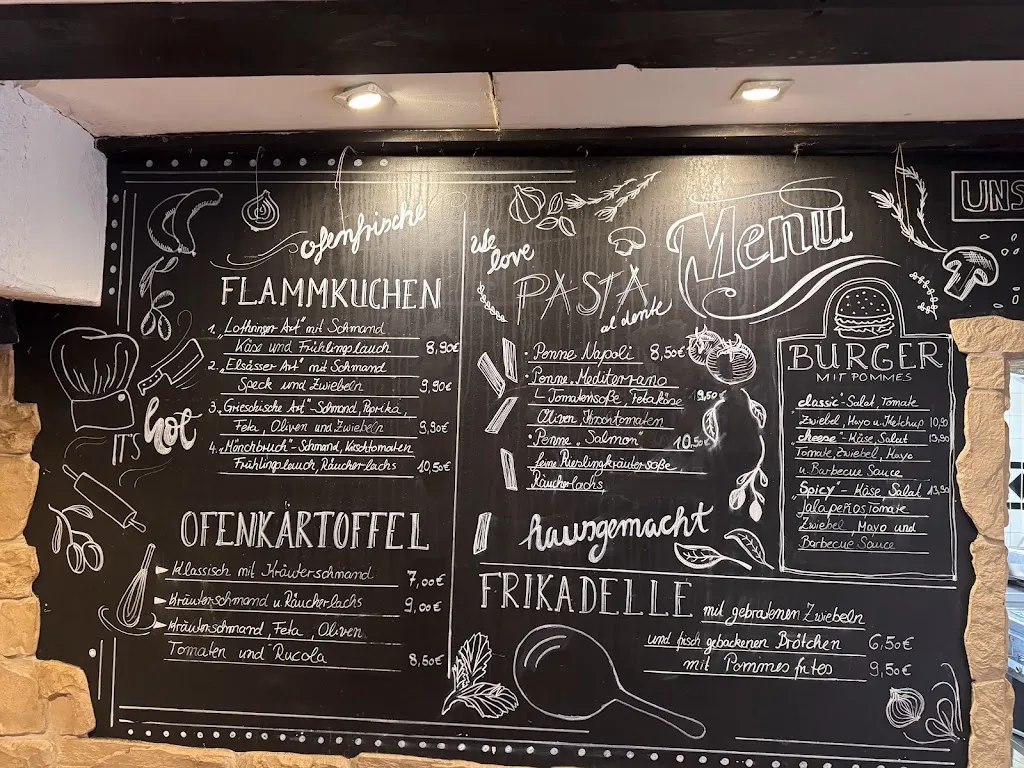 ofenfrische
FLAMMKUCHEN
1. „Lothringer Art" mit Schmand
Käse und Frühlingslauch 8,90€
2. „Elsässer Art" mit Schmand
Speck und Zwiebeln 9,90€
3. „Griechische Art" - Schmand, Paprika,
Feta, Oliven und Zwiebeln 9,90€
4. „Mönchbruch" - Schmand, Kirschtomaten
Frühlingslauch, Räucherlachs 10,50€
IT'S hot
OFENKARTOFFEL
Klassisch mit Kräuterschmand 7,00€
Kräuterschmand u. Räucherlachs 9,00€
Kräuterschmand, Feta, Oliven
Tomaten und Rucola 8,50€
We love
PASTA
al dente
Menü
• Penne Napoli 8,50€
• Penne „Mediterrano
Tomatensoße, Fetakäse 10,50€
Oliven Kirschtomaten
• Penne „Salmon" 10,50€
feine Rieslingkräutersoße
Räucherlachs
hausgemacht
FRIKADELLE mit gebratenen Zwiebeln
und frisch gebackenen Brötchen 6,50€
mit Pommes frites 9,50€
BURGER
MIT POMMES
„classic" Salat, Tomate
Zwiebel, Mayo u. Ketchup 10,90
„cheese" - Käse, Salat 13,90
Tomate, Zwiebel, Mayo
u. Barbecue Sauce
„Spicy" - Käse, Salat 13,90
Jalapeños Tomate
Zwiebel Mayo und
Barbecue Sauce
UNS